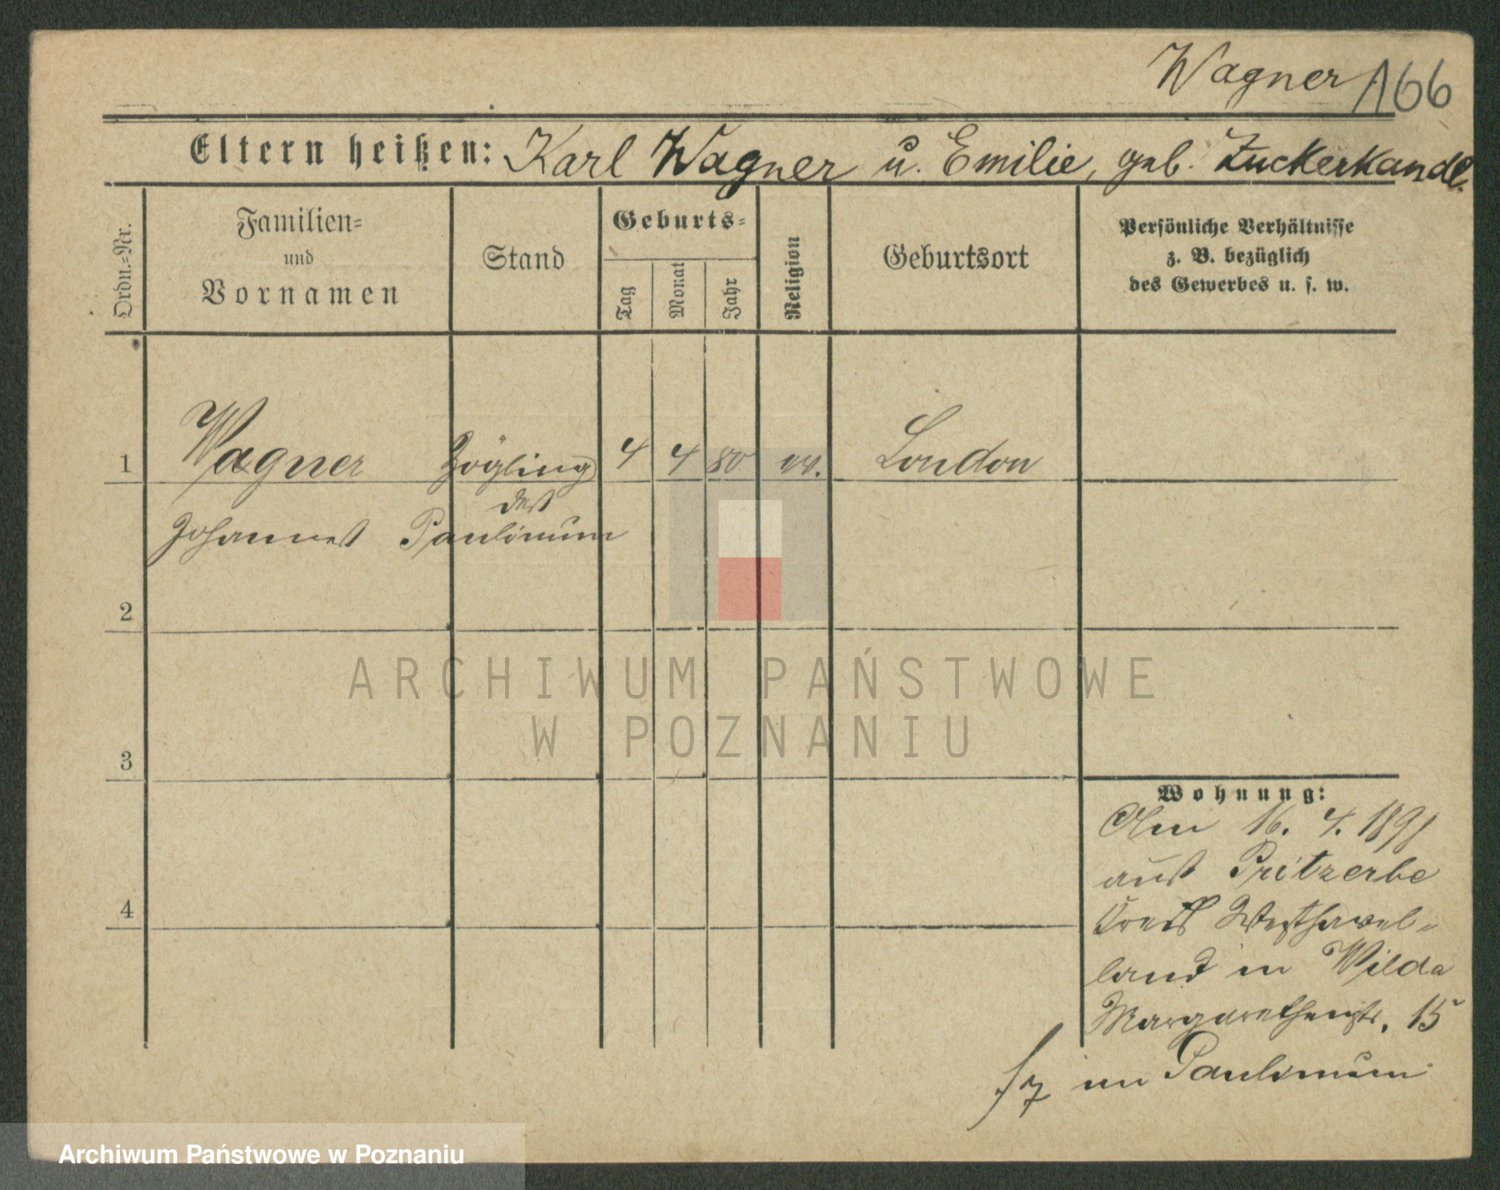 Wagner 166
Eltern heißen: Karl Wagner u. Emilie, geb. Zuckerkandl.
Ordn.-Nr.
Familien-
und
Vornamen
Stand
Geburts-
Tag
Monat
Jahr
Religion
Geburtsort
Persönliche Verhältnisse
z. B. bezüglich
des Gewerbes u. s. w.
1 Wagner Zögling 4 4 80 ev. London
des
Johannes Paulinum
2
ARCHIWUM PAŃSTWOWE
W POZNANIU
3
Wohnung:
Am 16. 4. 1898
aus Pritzerbe
4
Kreis Westhavel-
land in Wilda
Margarethenstr. 15
im Paulinum
Archiwum Państwowe w Poznaniu